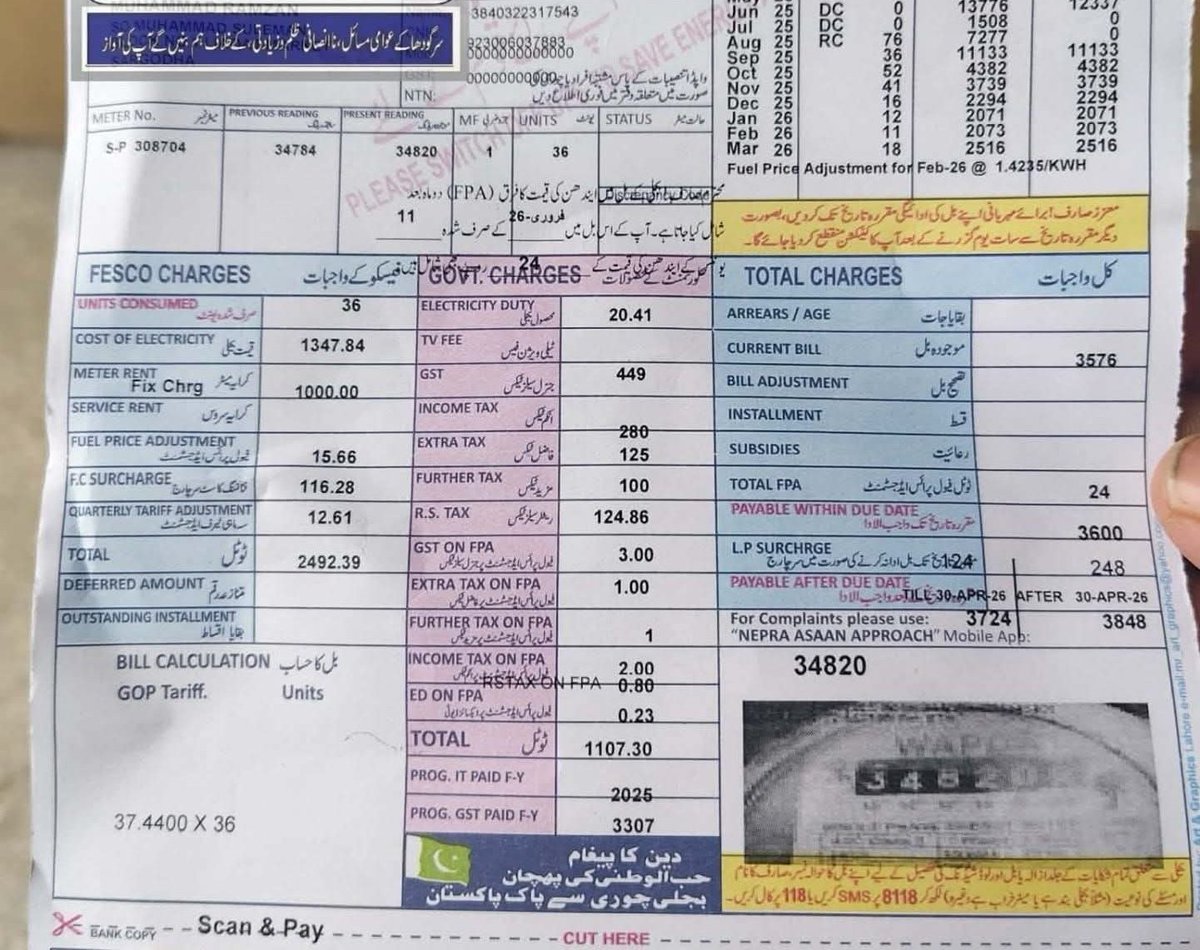 MUHAMMAD RAMZAN
3840322317543
سرگودھا کے عوامی مسائل، ناانصافی ظلم و زیادتی، کے خلاف ہم بنیں گے آپ کی آواز
923006037883
0000000000000
00000000000
NTN:
Jun 25 DC 0 13776 12337
Jul 25 DC 0 1508 0
Aug 25 RC 76 7277 0
Sep 25 36 11133 11133
Oct 25 52 4382 4382
Nov 25 41 3739 3739
Dec 25 16 2294 2294
Jan 26 12 2071 2071
Feb 26 11 2073 2073
Mar 26 18 2516 2516
Fuel Price Adjustment for Feb-26 @ 1.4235/KWH
PLEASE SWITCH AND SAVE ENERGY
METER No. PREVIOUS READING PRESENT READING MF UNITS یونٹ STATUS حالت میٹر
S-P 308704 34784 34820 1 36
ایندھن کی قیمت کا فرق (FPA) دو ماہ بعد
شامل کیا جاتا ہے۔ آپ کے اس بل میں فروری-26 کے صرف شدہ 11
24
معزز صارف! برائے مہربانی اپنے بل کی ادائیگی مقررہ تاریخ تک کردیں، بصورت
دیگر مقررہ تاریخ سے سات یوم گزرنے کے بعد آپ کا کنکشن منقطع کردیا جائے گا۔
FESCO CHARGES فیسکو کے واجبات
UNITS CONSUMED صرف شدہ یونٹ 36
COST OF ELECTRICITY قیمت بجلی 1347.84
METER RENT کرایہ میٹر
Fix Chrg 1000.00
SERVICE RENT کرایہ سروس
FUEL PRICE ADJUSTMENT فیول پرائس ایڈجسٹمنٹ 15.66
F.C SURCHARGE 116.28
QUARTERLY TARIFF ADJUSTMENT سہ ماہی ٹیرف ایڈجسٹمنٹ 12.61
TOTAL ٹوٹل 2492.39
DEFERRED AMOUNT
OUTSTANDING INSTALLMENT بقایا اقساط
GOVT. CHARGES
ELECTRICITY DUTY محصول بجلی 20.41
TV FEE ٹیلی ویژن فیس
GST جنرل سیلز ٹیکس 449
INCOME TAX انکم ٹیکس 280
EXTRA TAX فاضل ٹیکس 125
FURTHER TAX مزید ٹیکس 100
R.S. TAX ریٹیلر سیلز ٹیکس 124.86
GST ON FPA 3.00
EXTRA TAX ON FPA 1.00
FURTHER TAX ON FPA 1
INCOME TAX ON FPA 2.00
RSTAX ON FPA 0.80
ED ON FPA 0.23
TOTAL ٹوٹل 1107.30
PROG. IT PAID F-Y 2025
PROG. GST PAID F-Y 3307
TOTAL CHARGES کل واجبات
ARREARS / AGE بقایاجات
CURRENT BILL موجودہ بل 3576
BILL ADJUSTMENT تصحیح بل
INSTALLMENT قسط
SUBSIDIES رعائیت
TOTAL FPA ٹوٹل فیول پرائس ایڈجسٹمنٹ 24
PAYABLE WITHIN DUE DATE مقررہ تاریخ تک واجب الادا 3600
L.P SURCHRGE 124 248
PAYABLE AFTER DUE DATE TILL 30-APR-26 AFTER 30-APR-26
3724 3848
For Complaints please use:
"NEPRA ASAAN APPROACH" Mobile App:
BILL CALCULATION بل کا حساب
GOP Tariff. Units
37.4400 X 36
34820
34820
دین کا پیغام
حب الوطنی کی پہچان
بجلی چوری سے پاک پاکستان
BANK COPY Scan & Pay
CUT HERE